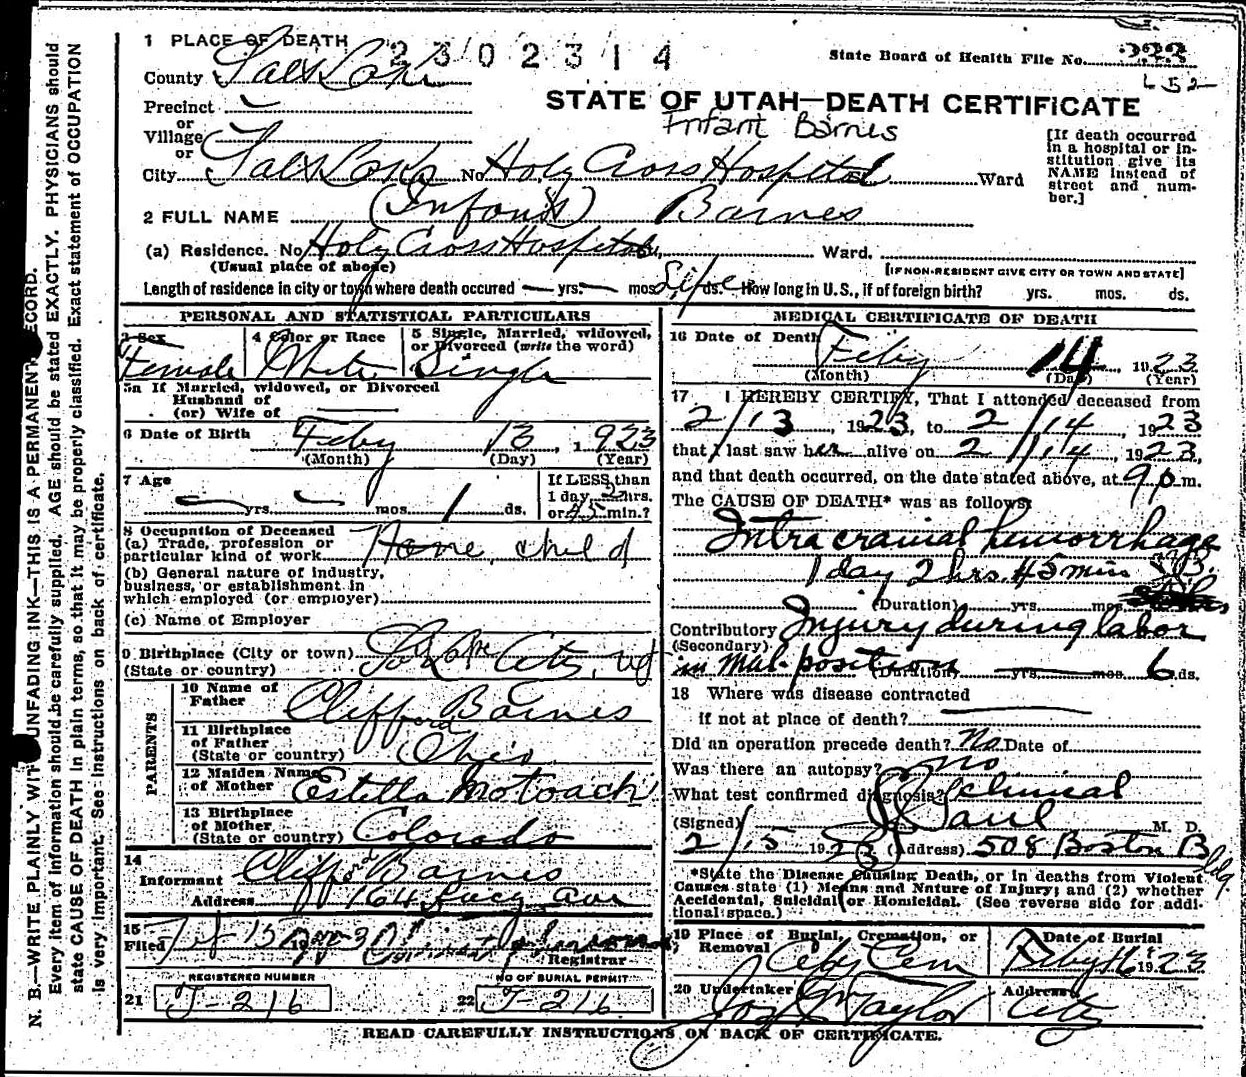 1 PLACE OF DEATH 2302314
State Board of Health File No. 222
County Salt Lake
452
STATE OF UTAH—DEATH CERTIFICATE
Precinct
Infant Barnes
or
Village
or
City Salt Lake No Holy Cross Hospital Ward
[If death occurred
in a hospital or in-
stitution give its
NAME instead of
street and num-
ber.]
2 FULL NAME (Infant) Barnes
(a) Residence. No Holy Cross Hospital, Ward.
(Usual place of abode)
[IF NON-RESIDENT GIVE CITY OR TOWN AND STATE]
Length of residence in city or town where death occured — yrs. — mos. Life ds. How long in U.S., if of foreign birth? yrs. mos. ds.
PERSONAL AND STATISTICAL PARTICULARS
3 Sex
Female
4 Color or Race
White
5 Single, Married, widowed,
or Divorced (write the word)
Single
5a If Married, widowed, or Divorced
Husband of
(or) Wife of —
6 Date of Birth Feby 13, 1923
(Month) (Day) (Year)
7 Age
— yrs. — mos. 1 ds.
If LESS than
1 day, 2 hrs.
or 45 min.?
8 Occupation of Deceased
(a) Trade, profession or
particular kind of work None, child
(b) General nature of industry,
business, or establishment in
which employed (or employer)
(c) Name of Employer
9 Birthplace (City or town) Salt Lake City, Ut
(State or country)
PARENTS
10 Name of
Father Clifford Barnes
11 Birthplace
of Father
(State or country) Ohio
12 Maiden Name
of Mother Estella
13 Birthplace
of Mother
(State or country) Colorado
14
Informant Clifford Barnes
Address 164 Ave
15
Filed Feb 15 1923
Registrar
REGISTERED NUMBER
21 J-216
NO OF BURIAL PERMIT
22 J-216
MEDICAL CERTIFICATE OF DEATH
16 Date of Death Feby 14, 1923
(Month) (Day) (Year)
17 I HEREBY CERTIFY, That I attended deceased from
2/13, 1923, to 2/14, 1923
that I last saw her alive on 2/14, 1923,
and that death occurred, on the date stated above, at 9 p.m.
The CAUSE OF DEATH* was as follows:
Intra cranial hemorrhage
1 day 2 hrs. 45 mins
(Duration) yrs. mos.
Contributory Injury during labor
(Secondary)
in mal-position (Duration) — yrs. — mos. 6 ds.
18 Where was disease contracted
if not at place of death? —
Did an operation precede death? No Date of
Was there an autopsy? No
What test confirmed diagnosis? Clinical
(Signed) Paul M. D.
2/15 1923 (Address) 508 Boston Bldg.
*State the Disease Causing Death, or in deaths from Violent
Causes state (1) Means and Nature of Injury; and (2) whether
Accidental, Suicidal or Homicidal. (See reverse side for addi-
tional space.)
19 Place of Burial, Cremation, or
Removal
City Cem
Date of Burial
Feby 16 1923
20 Undertaker
Jos Wm Taylor
Address
City
READ CAREFULLY INSTRUCTIONS ON BACK OF CERTIFICATE.
N. B.—WRITE PLAINLY WITH UNFADING INK—THIS IS A PERMANENT RECORD.
Every item of information should be carefully supplied. AGE should be stated EXACTLY. PHYSICIANS should
state CAUSE OF DEATH in plain terms, so that it may be properly classified. Exact statement of OCCUPATION
is very important. See instructions on back of certificate.